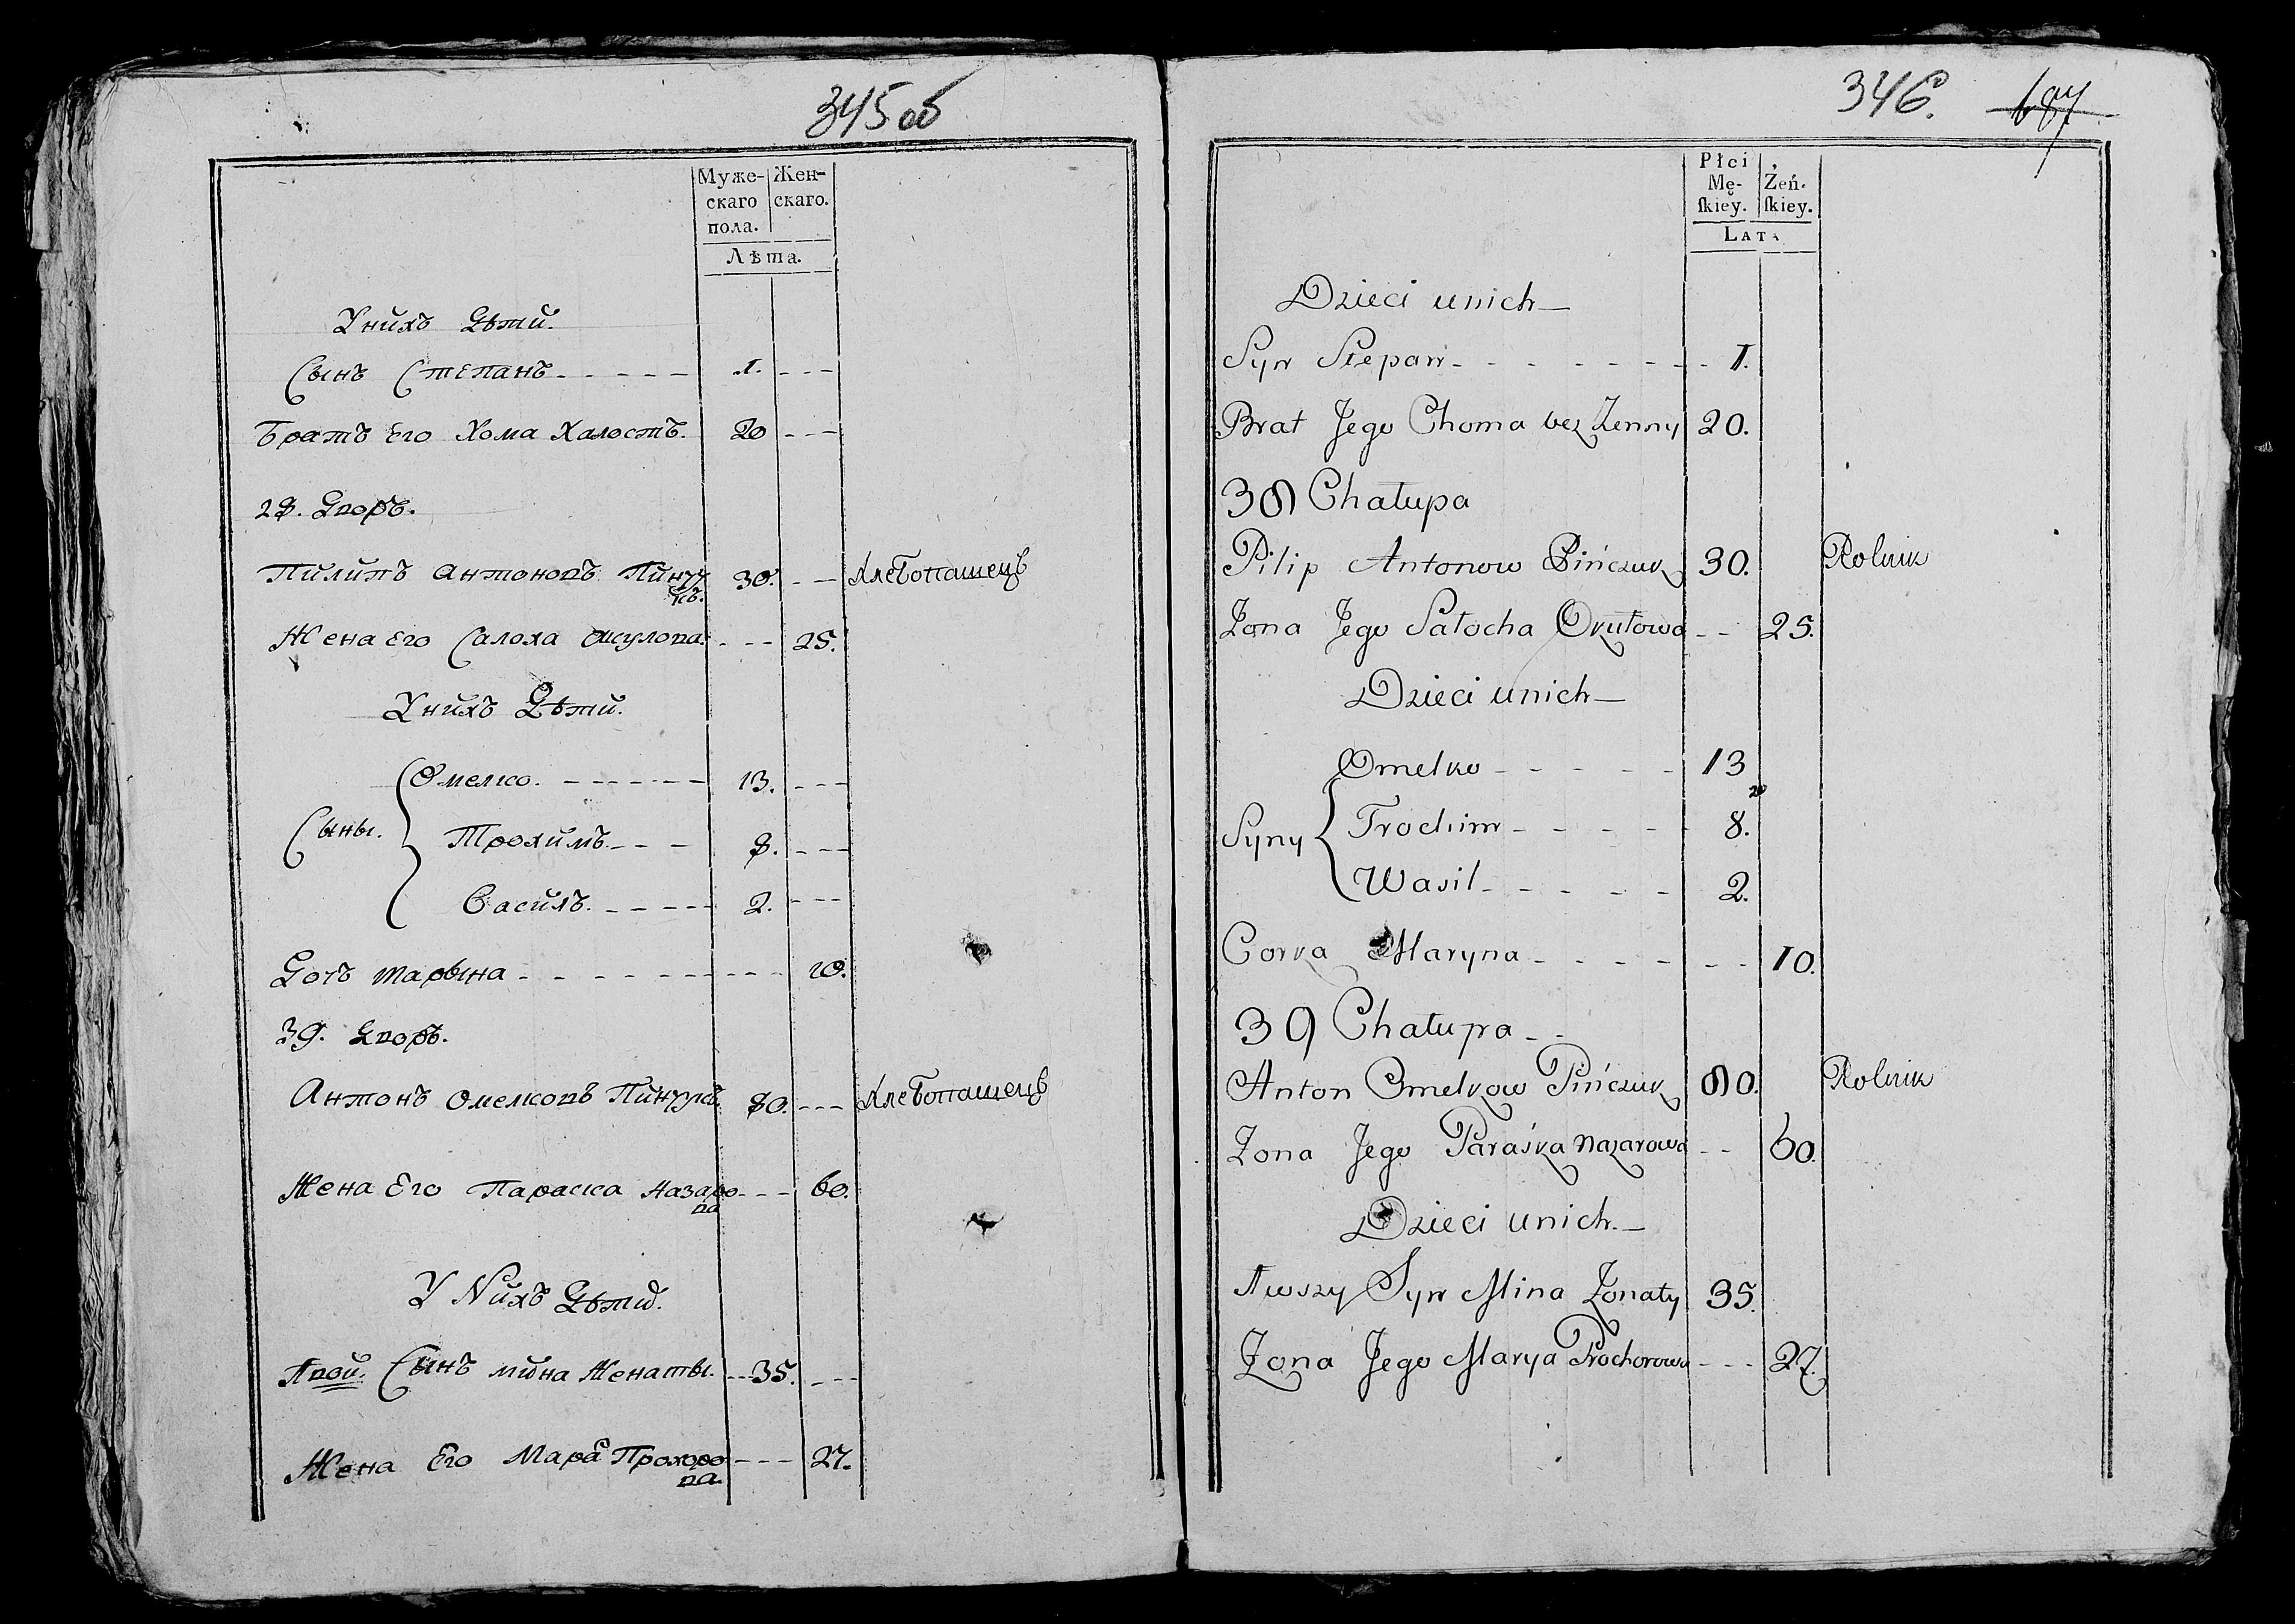 345 об
Муже-
скаго
пола.
Жен-
скаго.
Лѣта.
Унихъ Дѣти.
Сынъ Степанъ 1.
Братъ Его Хома Халостъ. 20
28. Дворъ.
Пилипъ Антоновъ Пинчу
къ. 30. Хлебопашецъ
Жена Его Салоха 25.
Унихъ Дѣти.
Омелко. 13.
Сыны. Трохимъ. 8.
Василъ. 2.
Дочъ Марына 10.
39. Дворъ.
Антонъ Омелковъ Пинчукъ 80. Хлебопашецъ
Жена Его Параска Назаро
ва 60.
У Nихъ Дѣти.
1вой. Сынъ Мина Женаты. 35.
Жена Его Маря Прохоро
ва. 27.
346. 687
Płci
Mę-
ſkiey.
Żeń-
ſkiey.
LATA
Dzieci unich
Syn Stepan 1.
Brat Jego Choma bez Zenny 20.
38 Chałupa
Pilip Antonow Pińczuk 30. Rolnik
Zona Jego Sałocha 25.
Dzieci unich
Omelko 13
Syny Trochim 8.
Wasil 2.
Corka Maryna 10.
39 Chałupa
Anton Omelkow Pińczuk 80. Rolnik
Zona Jego Paraśka Nazarowa 60.
Dzieci unich.
1wszy Syn Mina Zonaty 35.
Zona Jego Marya Prochorowa 27.